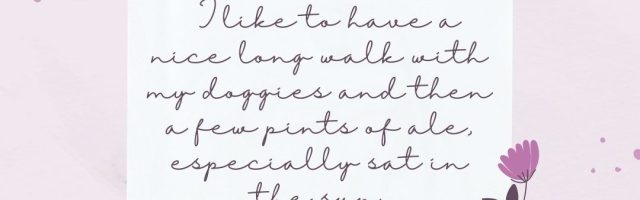 I like to have a
nice long walk with
my doggies and then
a few pints of ale,
especially sat in
the sun